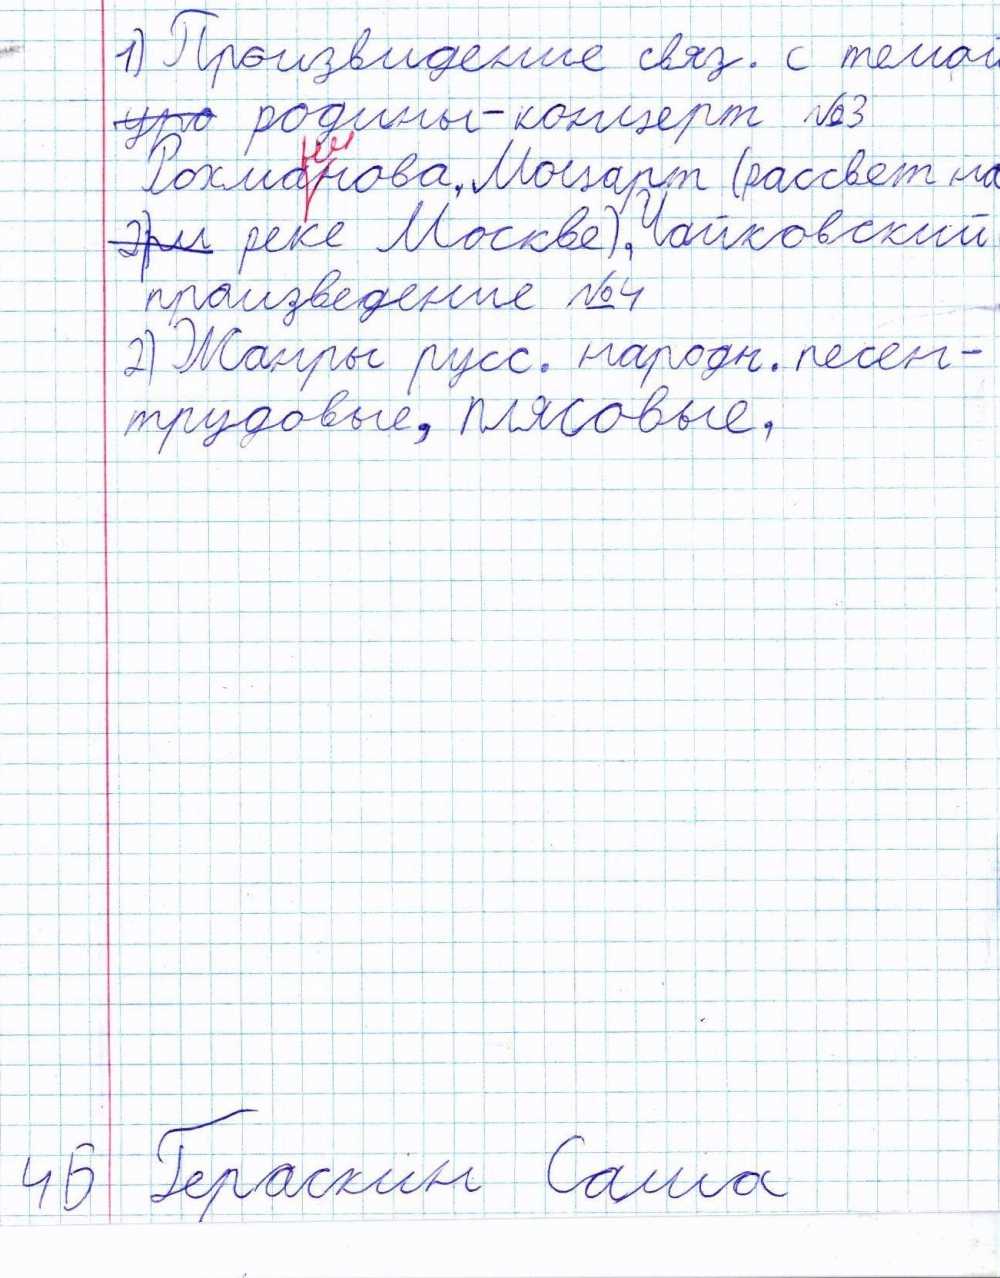 1) Произвидение связ. с темой
уро родины-концерт №3
Рохманнинова, Моцарт (рассвет на
реке Москве), Чайковский
произведение №4
2) Жанры русс. народн. песен-
трудовые, плясовые,
4Б Гераскин Саша